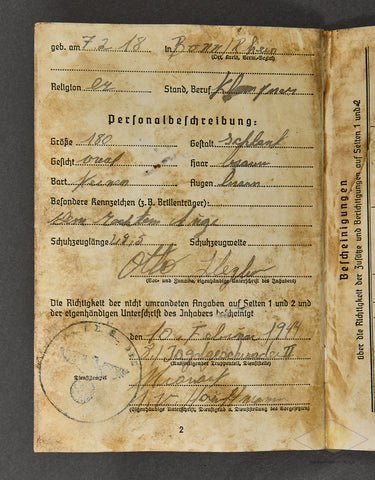 geb. am 7.2.18 in Bonn/Rhein
(Ort, Kreis, Verw.-Bezirk)
Religion ev Stand, Beruf
Personalbeschreibung:
Größe 180 Gestalt schlank
Gesicht oval Haar braun
Bart keinen Augen braun
Besondere Kennzeichen (z.B. Brillenträger):
Auge
Schuhzeuglänge 28,5 Schuhzeugweite
Otto
(Vor- und Zuname, eigenhändige Unterschrift des Inhabers)
Die Richtigkeit der nicht umrandeten Angaben auf Seiten 1 und 2
und der eigenhändigen Unterschrift des Inhabers bescheinigt
den 10. Februar 1944
II
(Ausfertigender Truppenteil, Dienststelle)
Dienststempel
Hauptmann
(Eigenhändige Unterschrift, Dienstgrad u. Dienststellung des Vorgesetzten)
2
Bescheinigungen
über die Richtigkeit der Zusätze und Berichtigungen auf Seiten 1 und 2